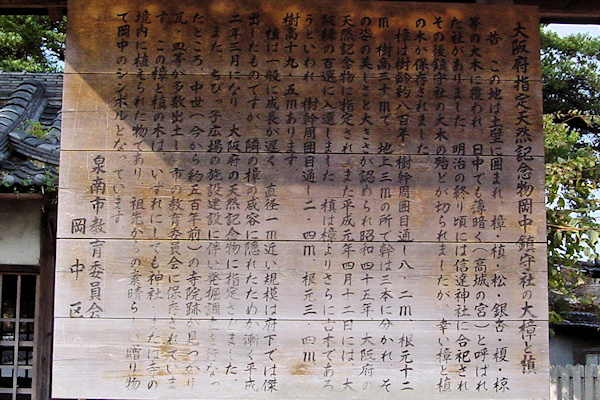 大阪府指定天然記念物岡中鎮守社の大樟と槙
昔、この地は土塁に囲まれ、樟・槙・松・銀杏・榎・椋
等の大木に覆われ、日中でも薄暗く(高城の宮)と呼ばれ
た社がありました。明治の終り頃には信達神社に合祀され
その後鎮守社の大木の殆どが切られましたが、幸い樟と槙
の木が保存されました。
樟は樹齢約八百年、樹幹周囲目通し八・二m、根元十二
m、樹高三十mで、地上三mの所で幹は三本に分かれ、そ
の姿の美しさと大きさが認められ昭和四十五年、大阪府の
天然記念物に指定され、また平成元年四月十二日には、大
阪緑の百選に入選しました。槙は樟よりさらに古木であろ
うといわれ、樹幹周囲目通し二・四m、根元三・四m、
樹高十九・五mあります。
槙は一般に成長が遅く、直径一m近い規模は府下では傑
出したものですが、隣の樟の威容に隠れたためか漸く平成
二年三月になり、大阪府の天然記念物に指定されました。
また、ちびっ子広場の施設建設に伴い発掘調査を行なっ
たところ、中世(今から約五百年前)の寺院跡が見つかり
瓦・皿等が多数出土し、市の教育委員会に保存されていま
す。この樟と槙の木は、いずれにしても神社、または寺の
境内に植えられた物であり、祖先からの素晴らしい贈り物
で岡中のシンボルとなっています。
泉南市教育委員会
岡中区